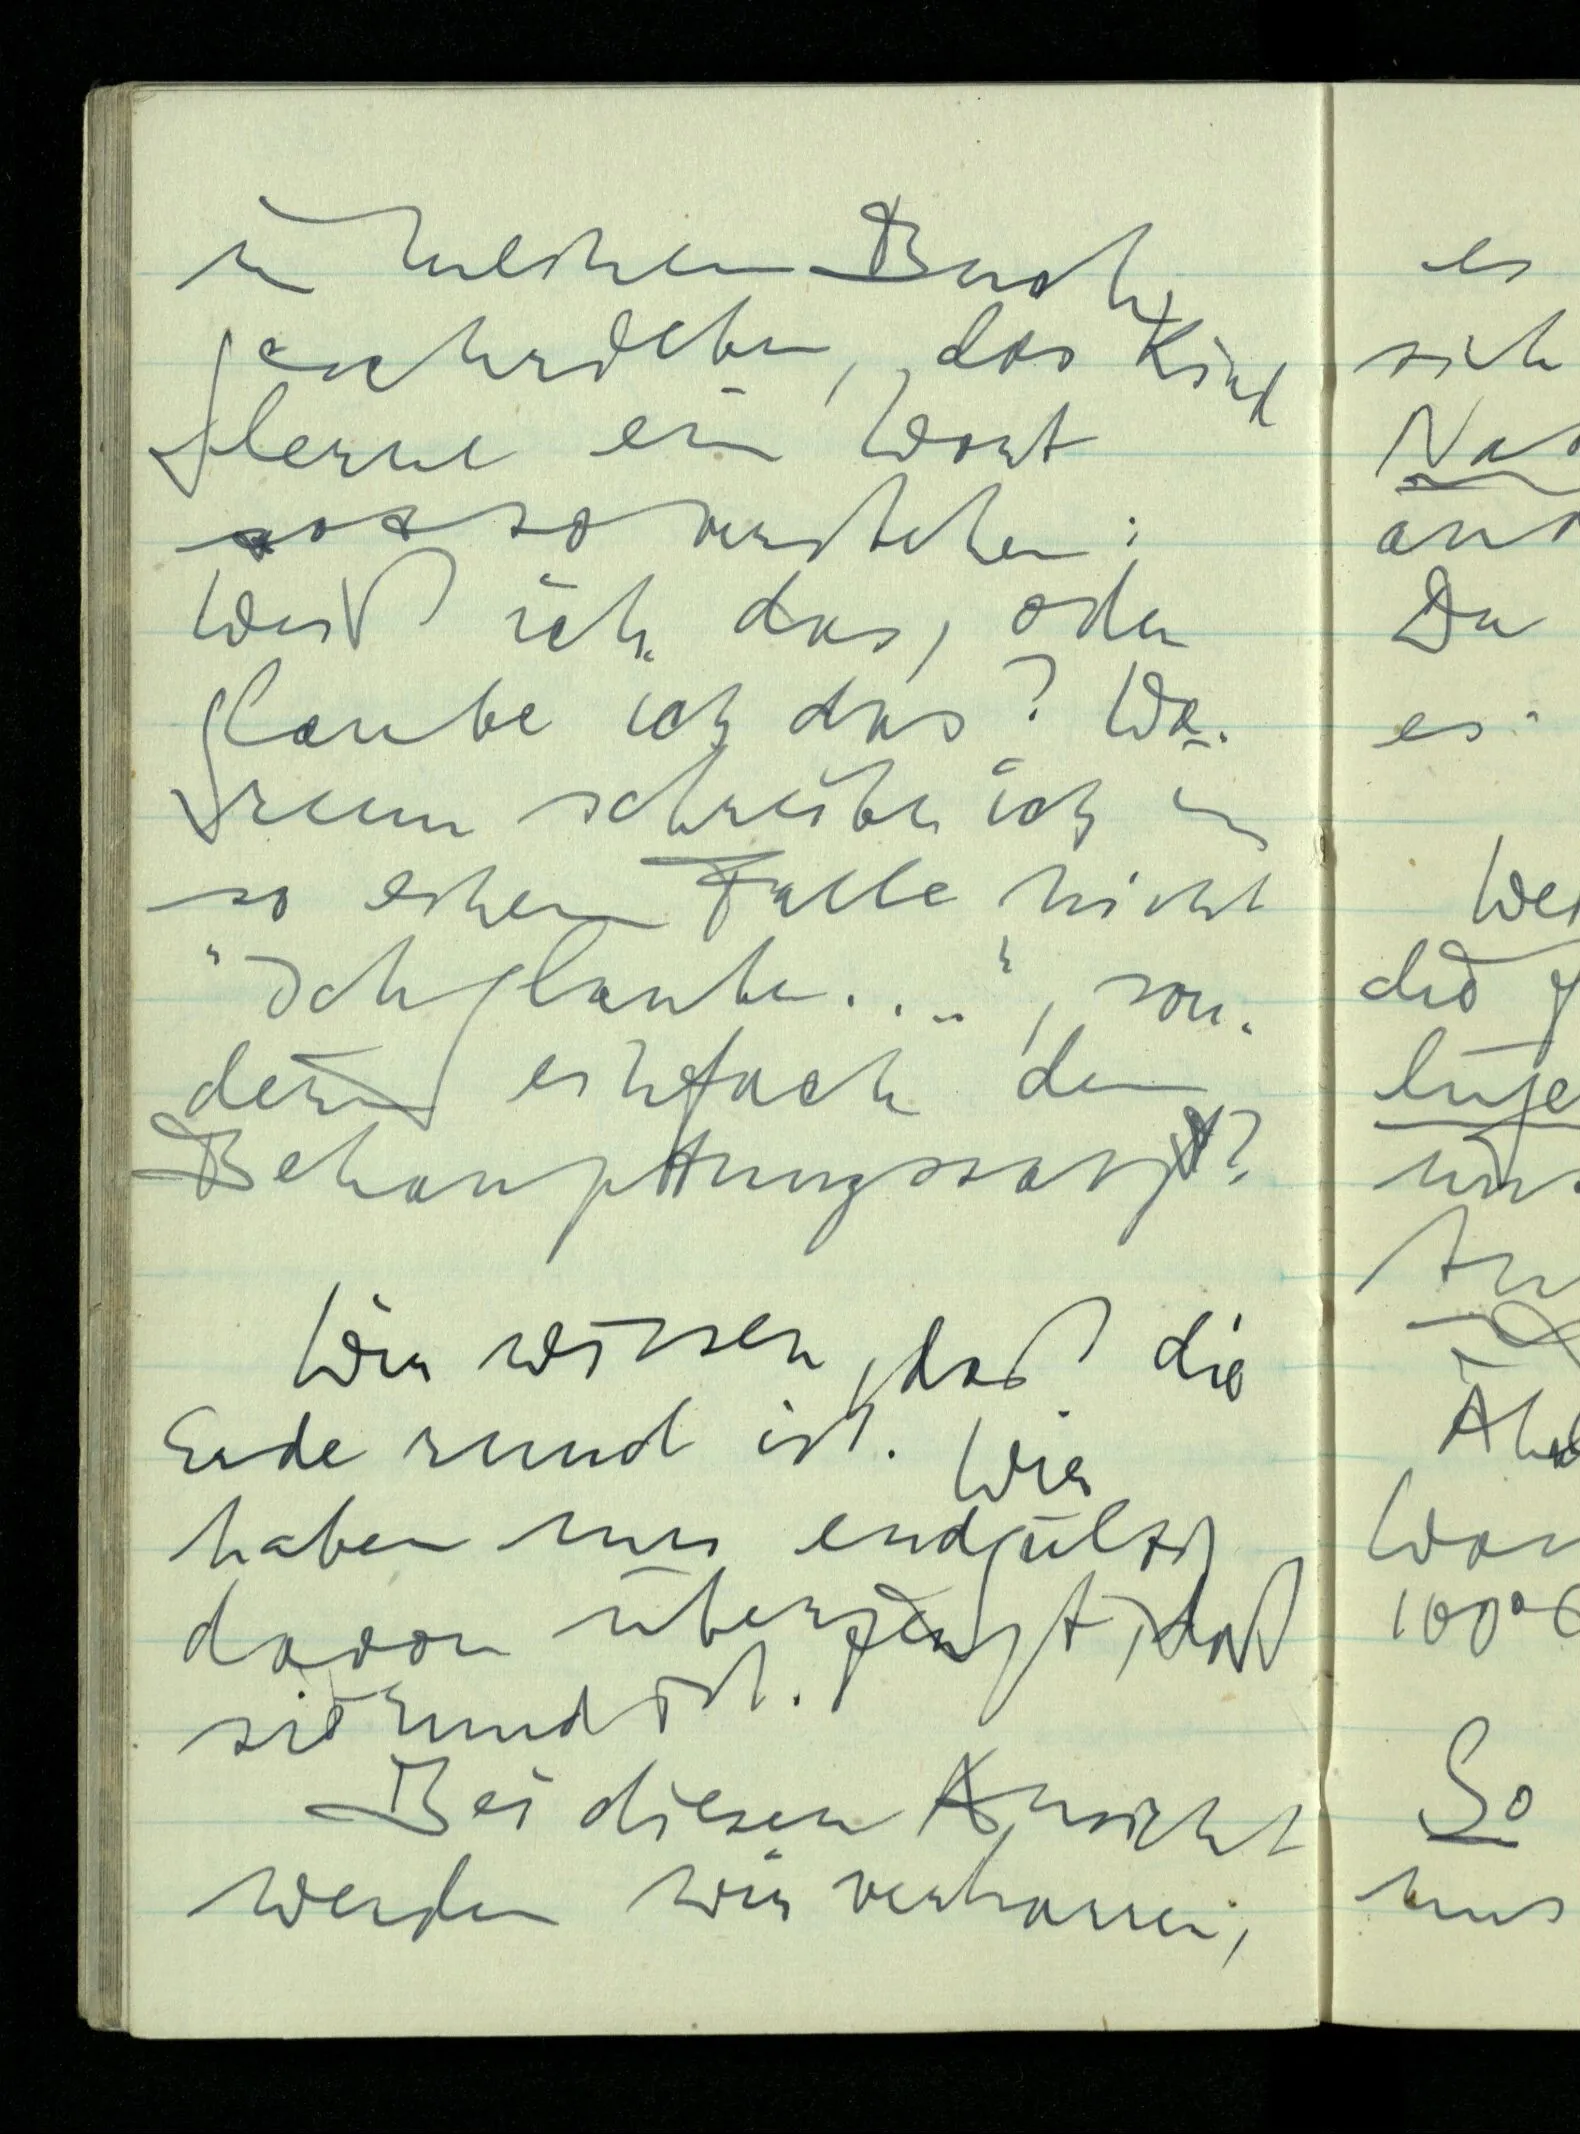 in meinem Buch
geschrieben, das Kind
lerne ein Wort
so & so verstehen:
Weiß ich das, oder
glaube ich das? Wa-
rum schreibe ich in
so einem Falle nicht
"Ich glaube....", son-
dern einfach den
Behauptungssatz?
Wir wissen, daß die
Erde rund ist. Wir
haben uns endgültig
davon überzeugt, daß
sie rund ist.
Bei dieser Ansicht
werden wir verharren,
es
sich
Da
es
So